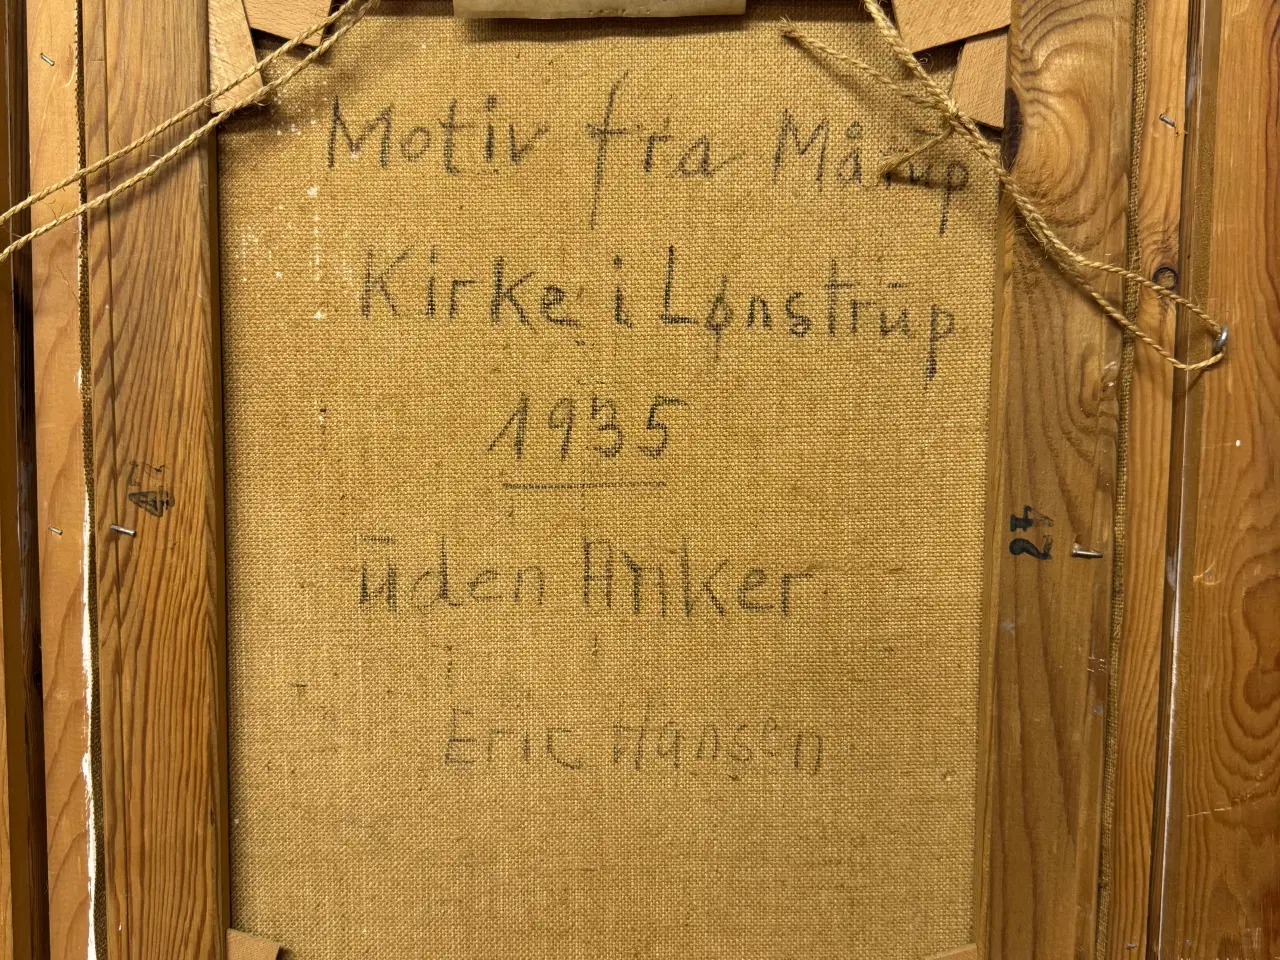 Motiv fra Mårup
Kirke i Lønstrup
1935
uden Anker
Eric Hansen
42
42